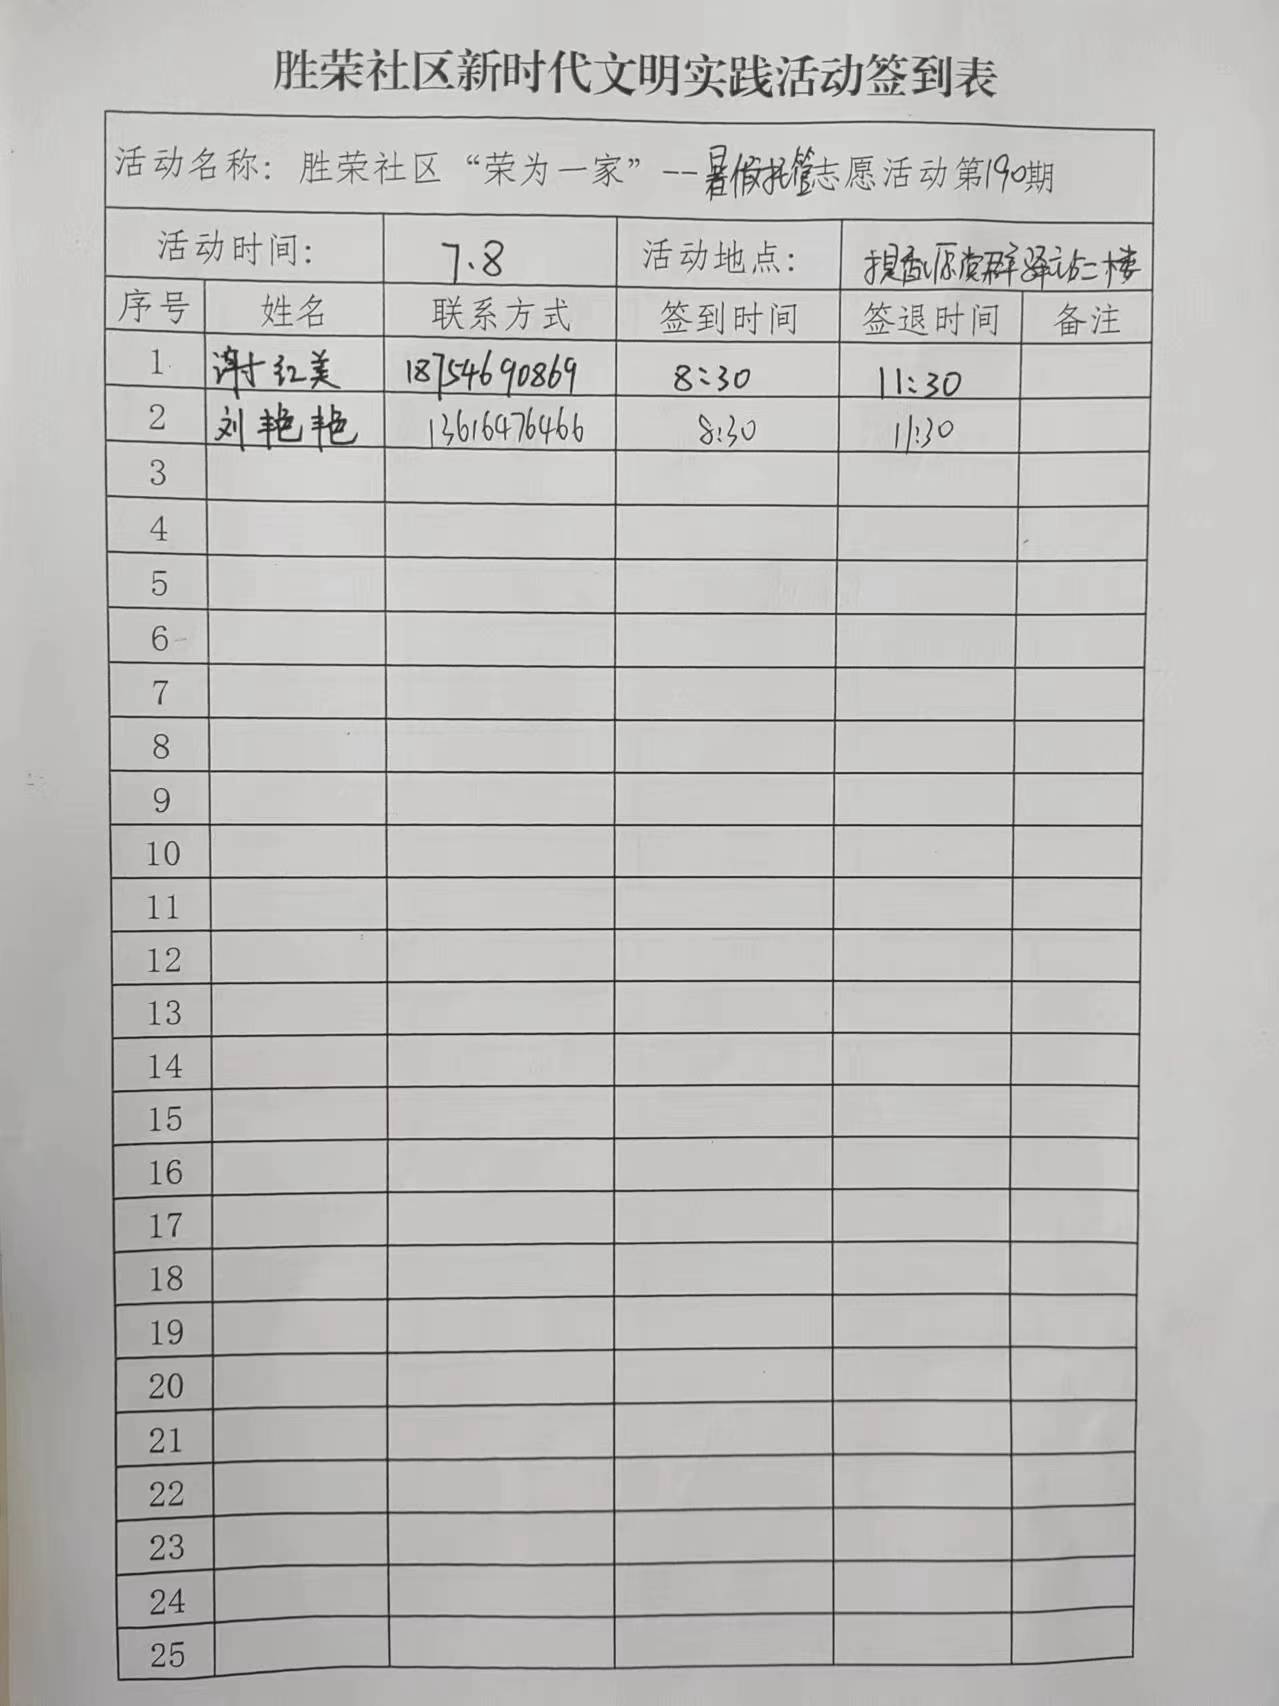 胜荣社区新时代文明实践活动签到表
活动名称：胜荣社区“荣为一家”--暑假托管志愿活动第190期
活动时间： 7.8 活动地点： 提香源党群驿站二楼
序号 姓名 联系方式 签到时间 签退时间 备注
1 谢红美 18754690869 8:30 11:30
2 刘艳艳 13616476466 8:30 11:30
3
4
5
6
7
8
9
10
11
12
13
14
15
16
17
18
19
20
21
22
23
24
25